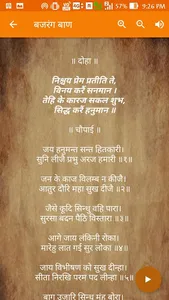 9:26 PM
बजरंग बाण
॥ दोहा ॥
निश्चय प्रेम प्रतीति ते,
विनय करैं सनमान ।
तेहि के कारज सकल शुभ,
सिद्ध करैं हनुमान ॥
॥ चौपाई ॥
जय हनुमन्त सन्त हितकारी ।
सुनि लीजै प्रभु अरज हमारी ॥१॥
जन के काज विलम्ब न कीजै ।
आतुर दौरि महा सुख दीजै ॥२॥
जैसे कूदि सिन्धु वहि पारा ।
सुरसा बदन पैठि विस्तारा ॥३॥
आगे जाय लंकिनी रोका ।
मारेहु लात गई सुर लोका ॥४॥
जाय विभीषण को सुख दीन्हा ।
सीता निरखि परम पद लीन्हा ॥५॥
बाग उजारि सिन्धु मंह बोरा ।